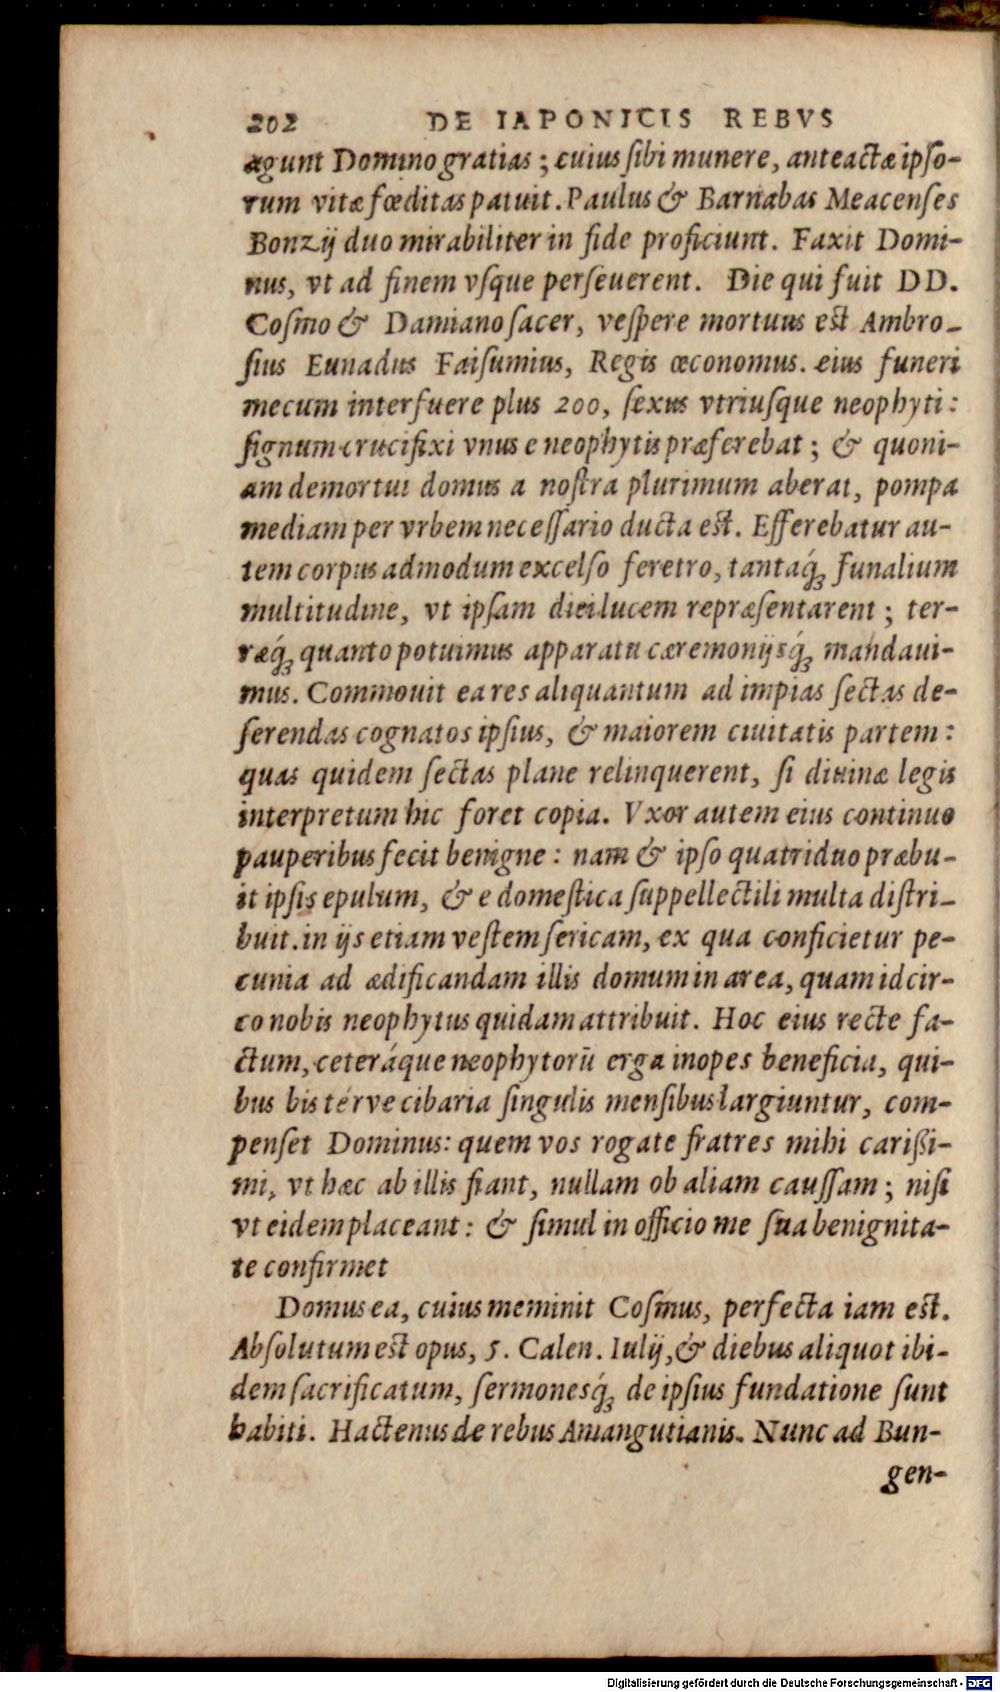 202 DE IAPONICIS REBVS
agunt Domino gratias; cuius sibi munere, anteactæ ipso-
rum vitæ fœditas patuit. Paulus & Barnabas Meacenses
Bonzij duo mirabiliter in fide proficiunt. Faxit Domi-
nus, vt ad finem vsque perseuerent. Die qui fuit DD.
Cosmo & Damiano sacer, vespere mortuus est Ambro-
sius Eunadus Faisumius, Regis œconomus. eius funeri
mecum interfuere plus 200, sexus vtriusque neophyti:
signum crucifixi vnus e neophytis præferebat; & quoni-
am demortui domus a nostra plurimum aberat, pompa
mediam per vrbem necessario ducta est. Efferebatur au-
tem corpus admodum excelso feretro, tantaq́ꝫ funalium
multitudine, vt ipsam diei lucem repræsentarent; ter-
ræq́ꝫ quanto potuimus apparatu cæremonijsq́ꝫ mandaui-
mus. Commouit ea res aliquantum ad impias sectas de-
serendas cognatos ipsius, & maiorem ciuitatis partem:
quas quidem sectas plane relinquerent, si diuinæ legis
interpretum hic foret copia. Vxor autem eius continuo
pauperibus fecit benigne: nam & ipso quatriduo præbu-
it ipsis epulum, & e domestica suppellectili multa distri-
buit. in ijs etiam vestem sericam, ex qua conficietur pe-
cunia ad ædificandam illis domum in area, quam idcir-
co nobis neophytus quidam attribuit. Hoc eius recte fa-
ctum, ceteráque neophytorū erga inopes beneficia, qui-
bus bis térve cibaria singulis mensibus largiuntur, com-
penset Dominus: quem vos rogate fratres mihi carißi-
mi, vt hæc ab illis fiant, nullam ob aliam caussam; nisi
vt eidem placeant: & simul in officio me sua benignita-
te confirmet
Domus ea, cuius meminit Cosmus, perfecta iam est.
Absolutum est opus, 5. Calen. Iulij, & diebus aliquot ibi-
dem sacrificatum, sermonesq́ꝫ de ipsius fundatione sunt
habiti. Hactenus de rebus Amangutianis. Nunc ad Bun-
gen-
Digitalisierung gefördert durch die Deutsche Forschungsgemeinschaft - DFG